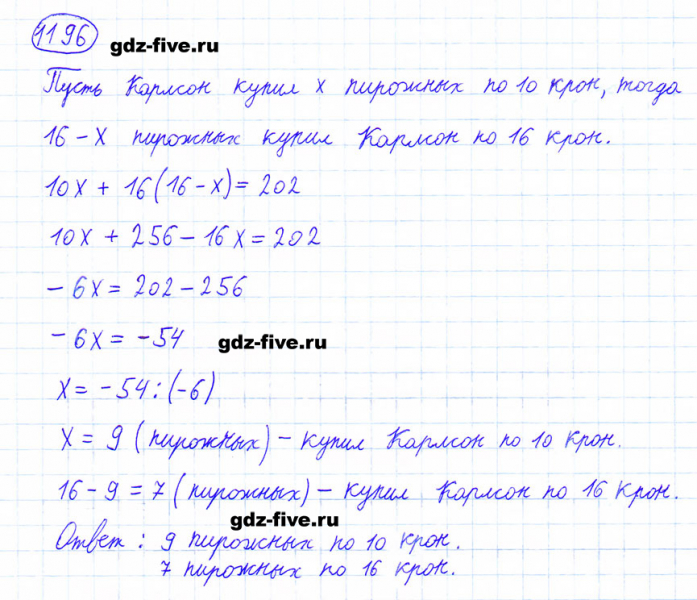 1196
gdz-five.ru
Пусть Карлсон купил x пирожных по 10 крон, тогда
16 - x пирожных купил Карлсон по 16 крон.
10x + 16(16 - x) = 202
10x + 256 - 16x = 202
- 6x = 202 - 256
- 6x = -54
gdz-five.ru
x = -54 : (-6)
x = 9 (пирожных) - купил Карлсон по 10 крон.
16 - 9 = 7 (пирожных) - купил Карлсон по 16 крон.
gdz-five.ru
Ответ : 9 пирожных по 10 крон.
7 пирожных по 16 крон.